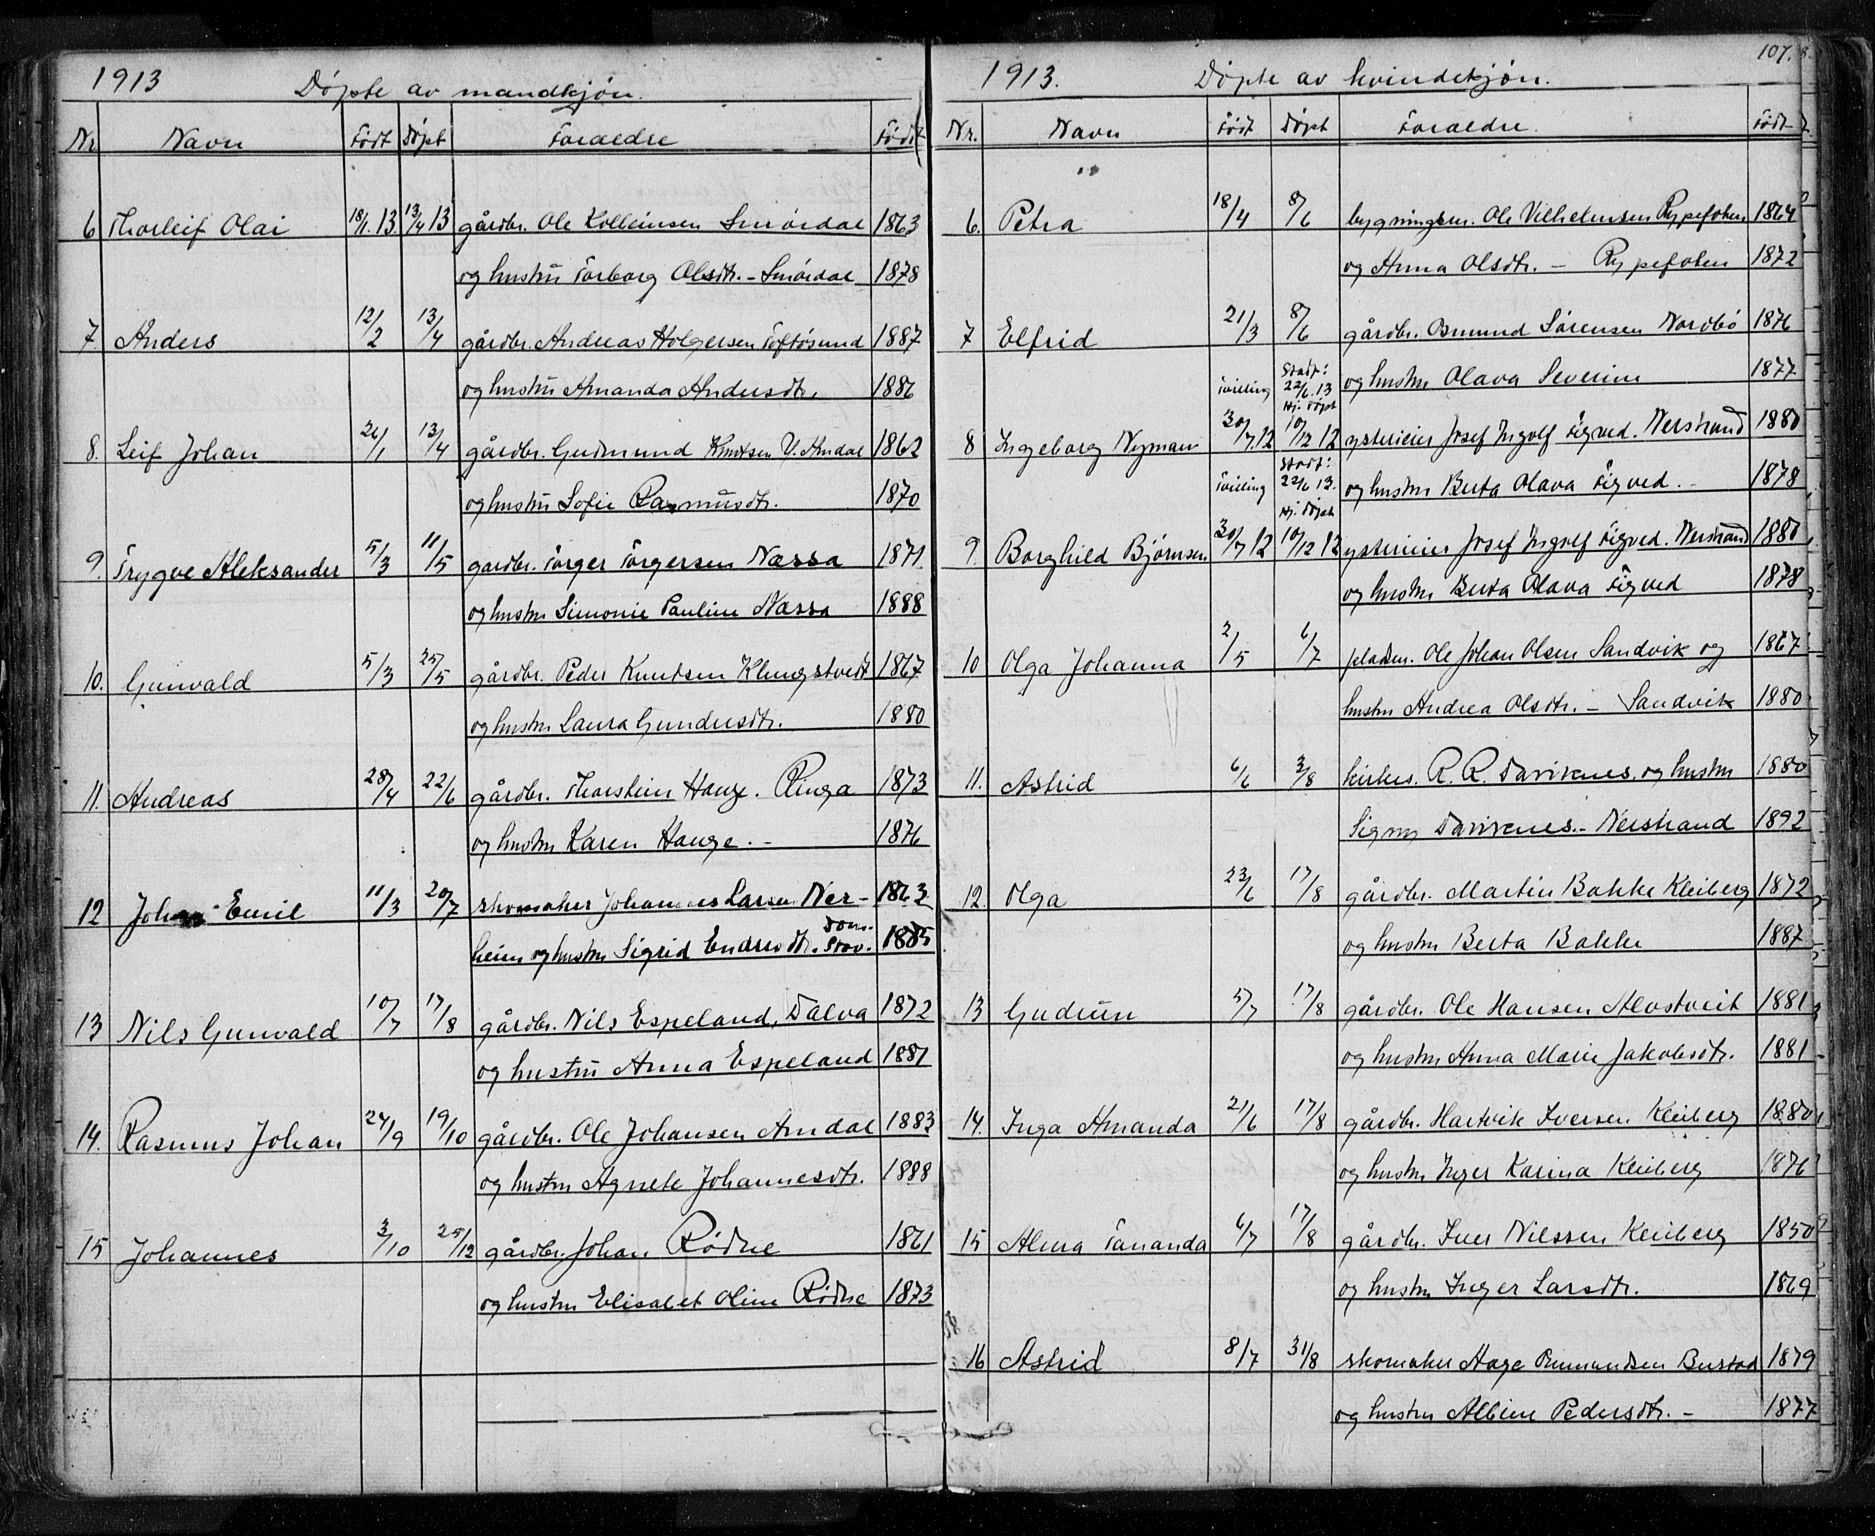 1913 Døpte av mandkjøn.
Nr Navn Født Døpt Foraeldre Født
6 Thorleif Olai 18/1.13. 13/4 13 gårdbr. Ole Kolleinsen Smørdal 1863
og hustru Torborg Olsdtr. - Smørdal 1878
7. Anders 12/2 13/4 gårdbr. Andreas Holgersen Toftøsund 1887
og hustru Amanda Andersdtr. 1886
8. Leif Johan 26/1 13/4 gårdbr. Gudmund Knutsen V. Amdal 1862
og hustru Sofie Rasmusdtr. 1870
9. Trygve Aleksander 5/3 11/5 gardbr. Torger Torgersen Nassa 1871
og hustru Simonie Pauline Nassa 1888
10. Gunvald 5/3 25/5 gårdbr. Peder Knutsen Klungstvedt 1867
og hustru Laura Gundersdtr. 1880
11. Andreas 28/4 22/6 gårdbr. Thorstein Hauge. Ringa 1873
og hustru Karen Hauge. - 1876
12 Johan Emil 11/3 20/7 skomaker Johannes Larsen Ner- 1863
heim og hustru Sigrid Endresdtr. Dom. Stav. 1885
13 Nils Gunvald 10/7 17/8 gårdbr. Nils Espeland, Dalva 1872
og hustru Anna Espeland 1881
14. Rasmus Johan 24/9 19/10 gårdbr. Ole Johansen Amdal 1883
og hustru Agnete Johannesdtr. 1888
15 Johannes 3/10 25/12 gårdbr. Johan Rødne 1861
og hustru Elisabet Oline Rødne 1873
107.
1913. Døpte av kvindekjøn.
Nr. Navn Født Døpt Foraeldre. Født
6. Petra 18/4 8/6 bygningsm. Ole Vilhelmsen Rypefoten 1864
og Anna Olsdtr. - Rypefoten 1872
7 Elfrid 21/3 8/6 gårdbr. Omund Sørensen Nordbø 1876
og hustru Olava Severine 1877
tvilling Stadf: 22/6.13 Hj. døpt
8 Ingeborg Nyman 30/7.12 10/12 12 ysterieier Josef Ingolf Tigved. Nerstrand 1880
tvilling Stadf: 22/6 13. Hj. døpt og hustru Berta Olava Tigved. - 1878
9. Borghild Bjørnsen 30/7 12 10/12 12 ysterieier Josef Ingolf Tigved. Nerstrand 1880
og hustru Berta Olava Tigved 1878
10 Olga Johanna 2/5 6/7 pladsm. Ole Johan Olsen Sandvik og 1867
hustru Andrea Olsdtr. - Sandvik 1880
11. Astrid 6/6 3/8 kirkes. R. R. Daviknes. og hustru 1880
Signy Daviknes. - Nerstrand 1892
12. Olga 23/6 17/8 gårdbr. Martin Bakke Kleiberg 1872
og hustru Berta Bakke 1887
13 Gudrun 5/7 17/8 gårdbr. Ole Hansen Alvstveit 1881
og hustru Anna Marie Jakobsdtr. 1881
14. Inga Amanda 21/6 17/8 gårdbr. Hartvik Iversen Kleiberg 1880
og hustru Inger Karina Kleiberg 1876
15 Alma Tananda 6/7 17/8 gårdbr. Iver Nilssen Kleiberg 1850
og hustru Inger Larsdtr. 1869
16 Astrid 8/7 31/8 skomaker Aage Omundsen Bustad 1879
og hustru Albine Pedersdtr. - 1877